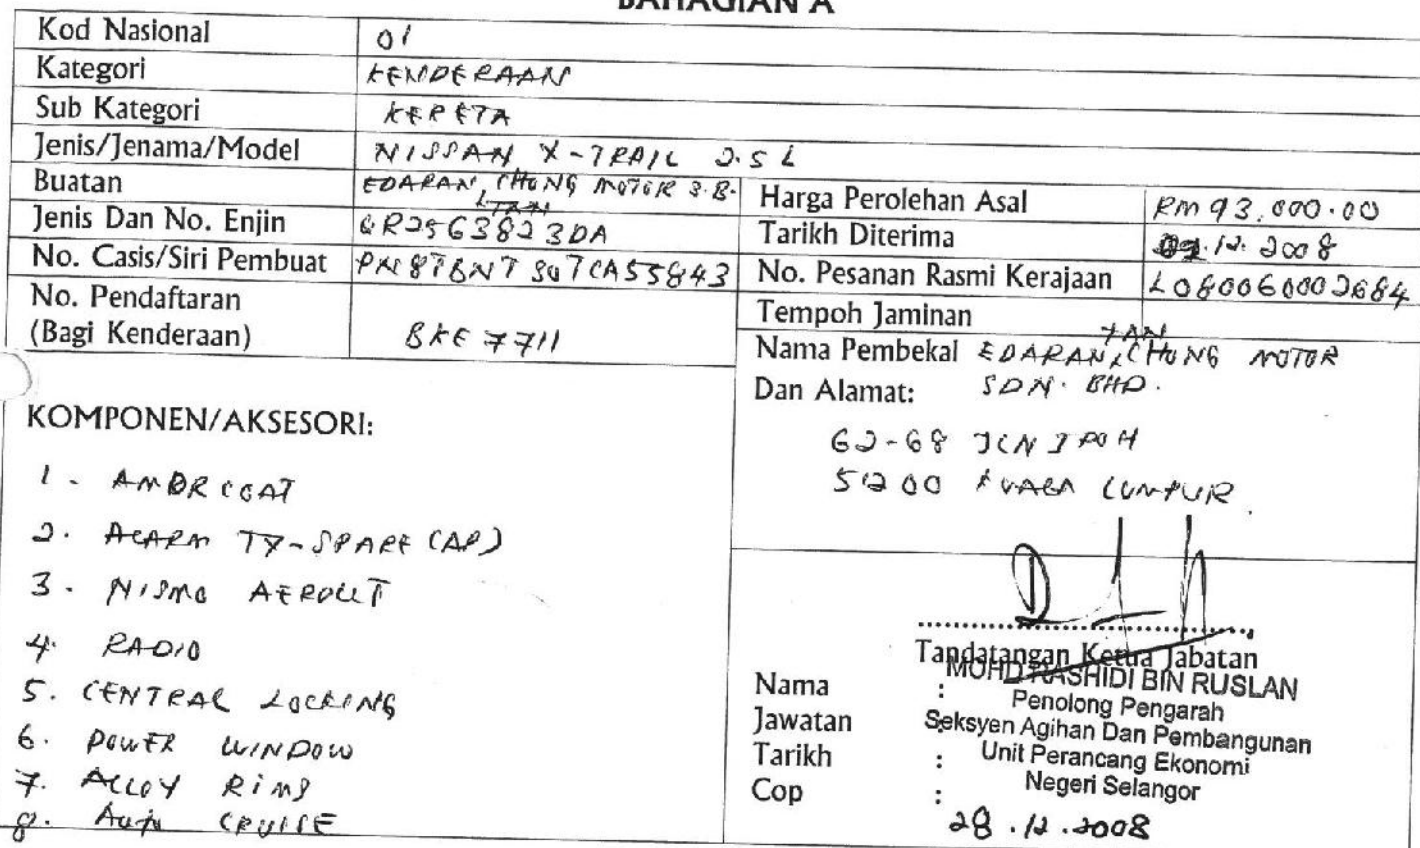 BAHAGIAN A
Kod Nasional 01
Kategori KENDERAAN
Sub Kategori KERETA
Jenis/Jenama/Model NISSAN X-TRAIL 2.5 L
Buatan EDARAN, CHONG MOTOR S.B.
TAN
Harga Perolehan Asal RM 93,000.00
Jenis Dan No. Enjin QR2563823DA
Tarikh Diterima 12.2008
No. Casis/Siri Pembuat PN8TBNTS07CA55843
No. Pesanan Rasmi Kerajaan L080060002684
No. Pendaftaran
(Bagi Kenderaan) BKE 7711
Tempoh Jaminan
TAN
Nama Pembekal EDARAN, CHONG MOTOR
Dan Alamat: SDN. BHD.
62-68 JLN IPOH
51200 KUALA LUMPUR.
KOMPONEN/AKSESORI:
1. AMOR COAT
2. ALARM TX-SPARE (AP)
3. NISMO AEROKIT
4. RADIO
5. CENTRAL LOCKING
6. POWER WINDOW
7. ALLOY RIMS
8. Auto CRUISE
Tandatangan Ketua Jabatan
MOHD RASHIDI BIN RUSLAN
Nama :
Penolong Pengarah
Jawatan :
Seksyen Agihan Dan Pembangunan
Tarikh :
Unit Perancang Ekonomi
Cop :
Negeri Selangor
28.12.2008